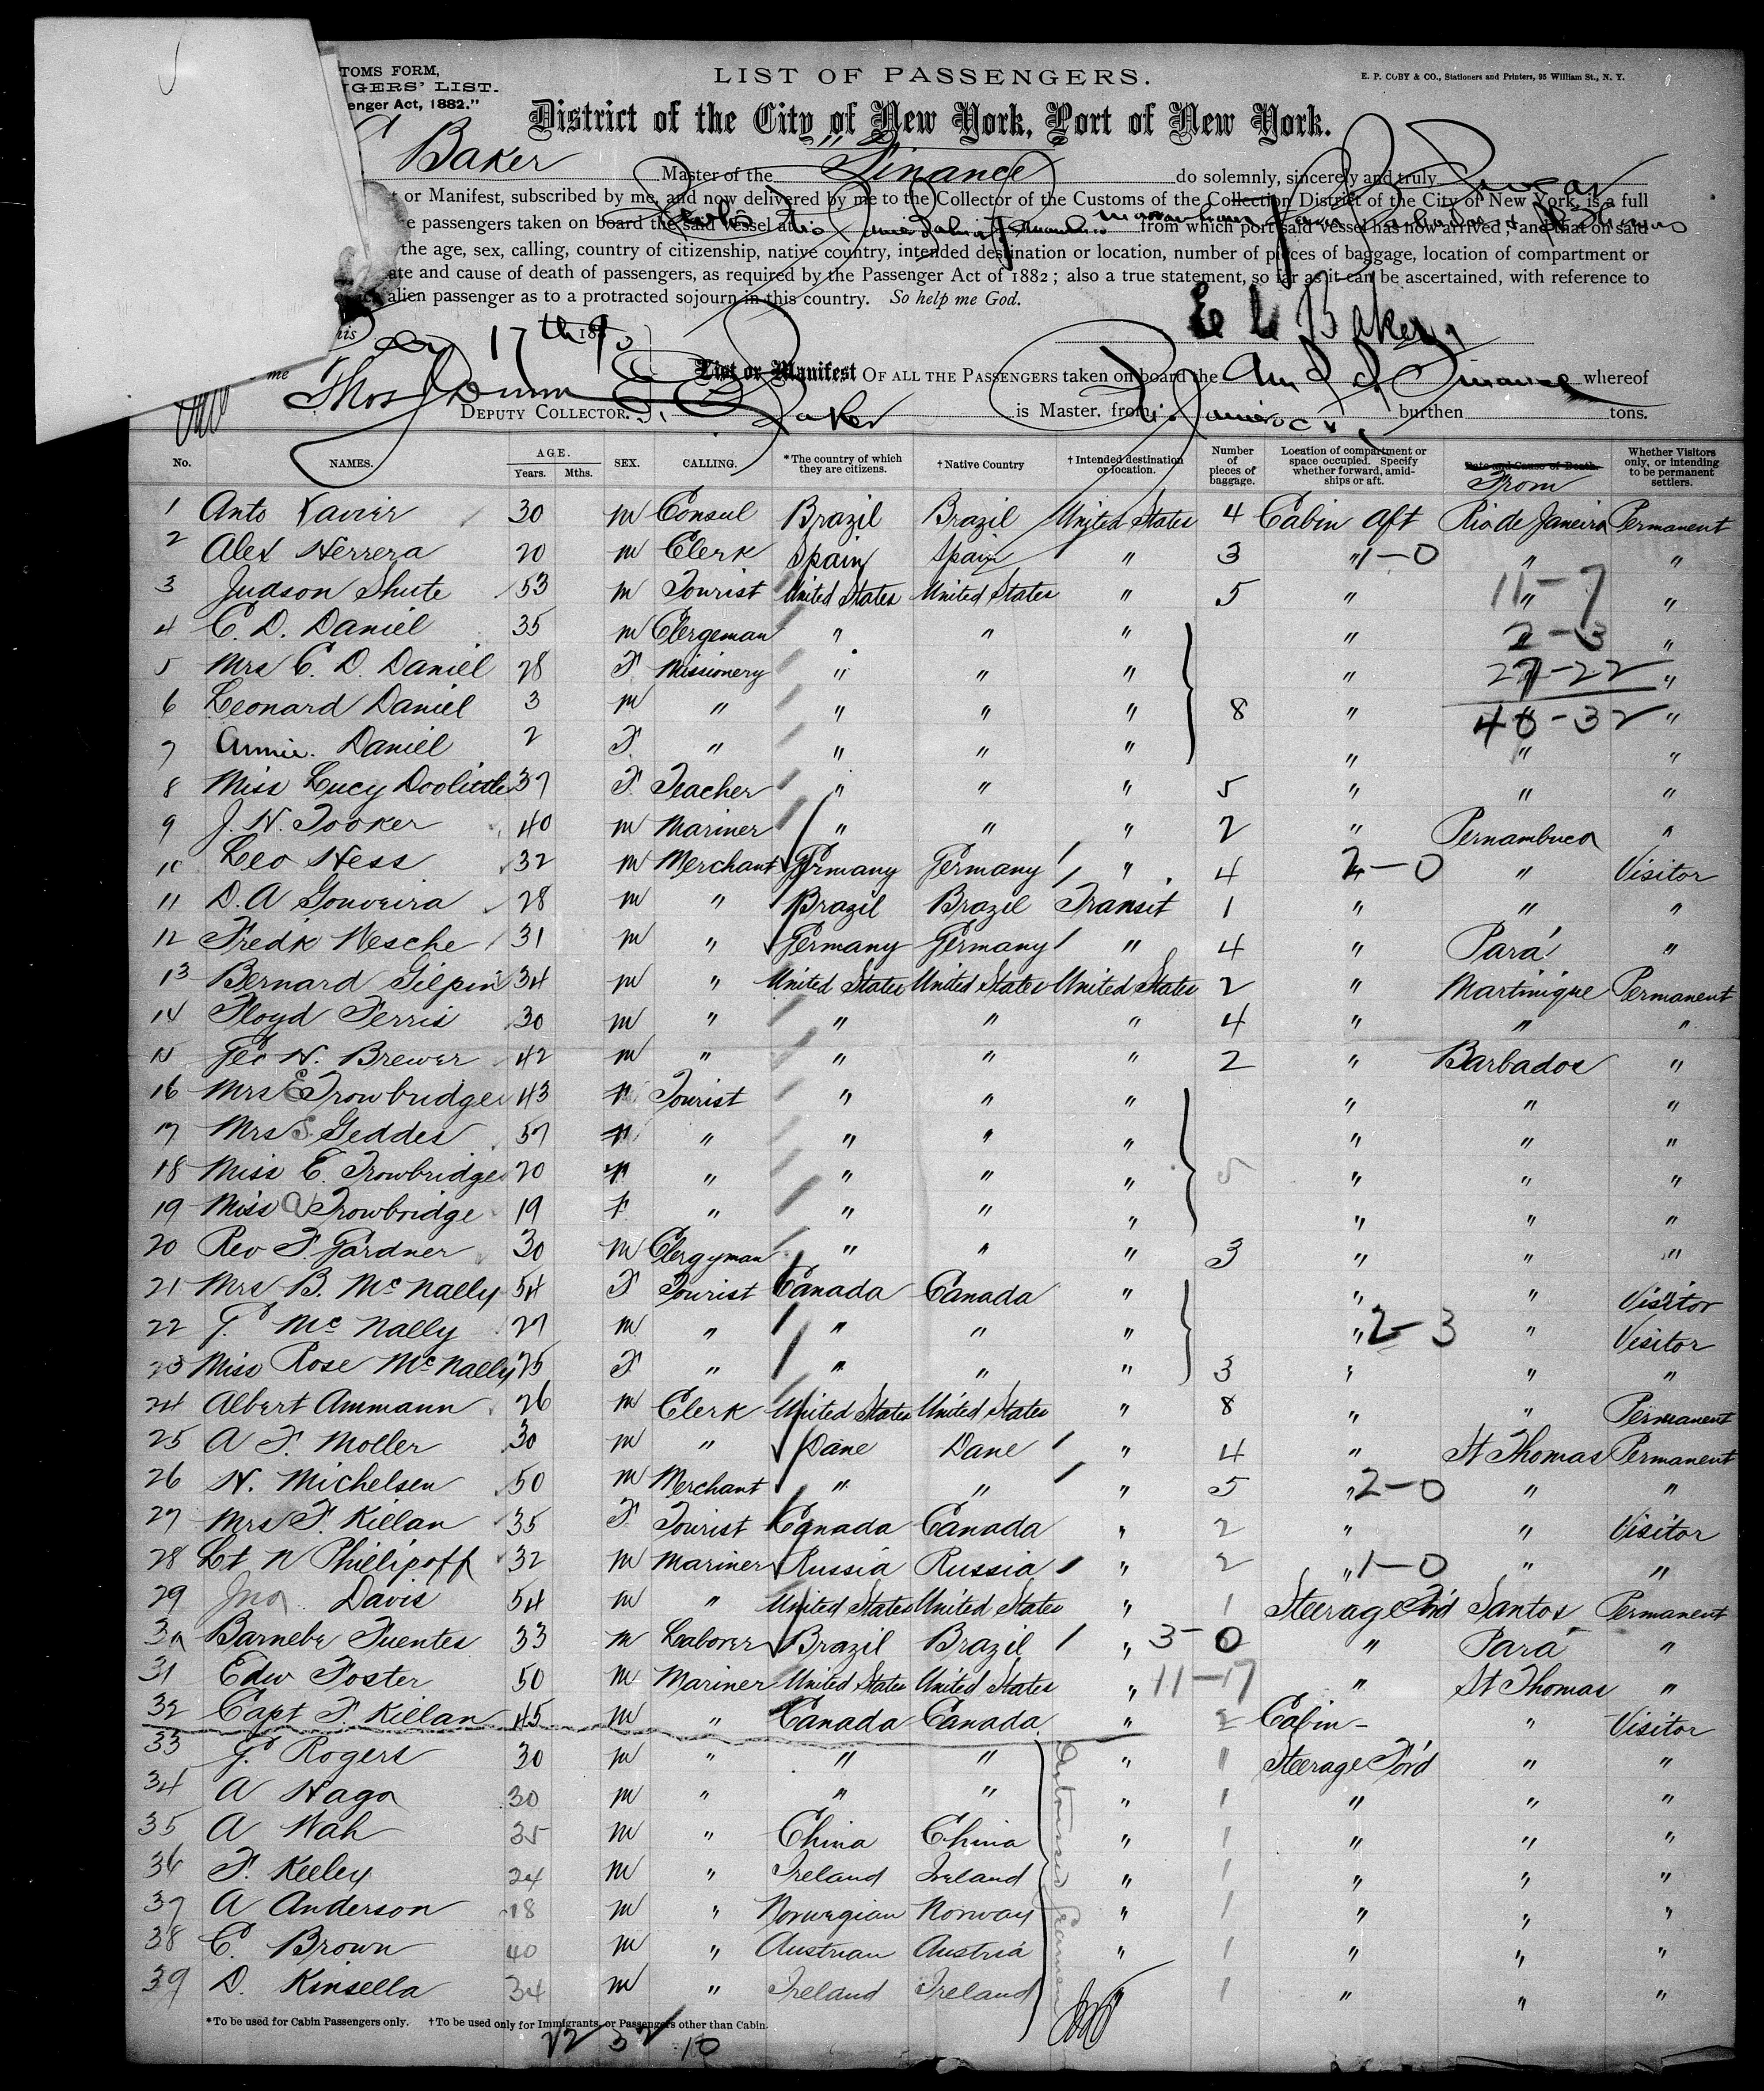 TOMS FORM,
IGERS' LIST.
enger Act, 1882."
LIST OF PASSENGERS.
E. P. COBY & CO., Stationers and Printers, 95 William St., N. Y.
District of the City of New York, Port of New York.
Baker Master of the "Finance" do solemnly, sincerely and truly Swear
t or Manifest, subscribed by me, and now delivered by me to the Collector of the Customs of the Collection District of the City of New York, is a full
e passengers taken on board the said vessel at Rio from which port said vessel has now arrived; and that on said
the age, sex, calling, country of citizenship, native country, intended destination or location, number of pieces of baggage, location of compartment or
ate and cause of death of passengers, as required by the Passenger Act of 1882; also a true statement, so far as it can be ascertained, with reference to
alien passenger as to a protracted sojourn in this country. So help me God.
E L Baker
his 17th 18
me Thos Dunn
List or Manifest OF ALL THE PASSENGERS taken on board the Am S.S. Finance whereof
DEPUTY COLLECTOR. Baker is Master, from Rio Janeiro burthen tons.
No. NAMES. AGE. Years. Mths. SEX. CALLING. *The country of which they are citizens. †Native Country †Intended destination or location. Number of pieces of baggage. Location of compartment or space occupied. Specify whether forward, amidships or aft. Date and Cause of Death. From Whether Visitors only, or intending to be permanent settlers.
1 Anto Xavier 30 M Consul Brazil Brazil United States 4 Cabin Aft Rio de Janeiro Permanent
2 Alex Herrera 20 M Clerk Spain Spain " 3 " 1-0 " "
3 Judson Shute 53 M Tourist United States United States " 5 " " 11-7 "
4 C. D. Daniel 35 M Clergeman " " " " 2-3 "
5 Mrs C. D. Daniel 28 F Missionery " " " " 27-22 "
6 Leonard Daniel 3 M " " " " 8 " 40-32 "
7 Annie. Daniel 2 F. " " " " " " "
8 Miss Lucy Doolittle 37 F. Teacher " " " 5 " " "
9 J. H. Tooker 40 M Mariner " " " 2 " Pernambuco "
10 Leo Hess 32 M Merchant Germany Germany " 4 " 2-0 " Visitor
11 D. A Gouveira 28 M " Brazil Brazil Transit 1 " " "
12 Fredk Wesche 31 M " Germany Germany " 4 " Pará "
13 Bernard Gilpin 34 M " United States United States United States 2 " Martinique Permanent
14 Floyd Ferris 30 M " " " " 4 " " "
15 Geo H. Brewer 42 M " " " " 2 " Barbados "
16 Mrs E Trowbridge 43 F Tourist " " " " " "
17 Mrs S. Geddes 57 F " " " " " " "
18 Miss E. Trowbridge 20 F " " " " 5 " " "
19 Miss A Trowbridge 19 F. " " " " " " "
20 Rev F. Gardner 30 M Clergyman " " " 3 " " "
21 Mrs B. McNally 54 F Tourist Canada Canada " " " Visitor
22 G. McNally 27 M " " " " " 2-3 " Visitor
23 Miss Rose McNally 25 F " " " " 3 " " "
24 Albert Ammann 26 M Clerk United States United States " 8 " " Permanent
25 A F. Moller 30 M " Dane Dane " 4 " St Thomas Permanent
26 H. Michelsen 50 M Merchant " " " 5 " 2-0 " "
27 Mrs F. Killan 35 F Tourist Canada Canada " 2 " " Visitor
28 Lt N Phillipoff 32 M Mariner Russia Russia " 2 " 1-0 " "
29 Jno. Davis 54 M " United States United States " 1 Steerage Ford Santos Permanent
30 Barnebe Fuentes 33 M Laborer Brazil Brazil " 3-0 " Pará "
31 Edw Foster 50 M Mariner United States United States " 11-17 " St Thomas "
32 Capt F. Killan 45 M " Canada Canada " 2 Cabin - " Visitor
33 G. Rogers 30 M " " " " 1 Steerage Ford " "
34 A Haga 30 M " " " " 1 " " "
35 A Wah 35 M " China China " 1 " " "
36 F. Keeley 24 M " Ireland Ireland " 1 " " "
37 A Anderson 18 M " Norwegian Norway " 1 " " "
38 C. Brown 40 M " Austrian Austria " 1 " " "
39 D. Kinsella 34 M " Ireland Ireland 1 " " "
*To be used for Cabin Passengers only. †To be used only for Immigrants or Passengers other than Cabin.
32 10